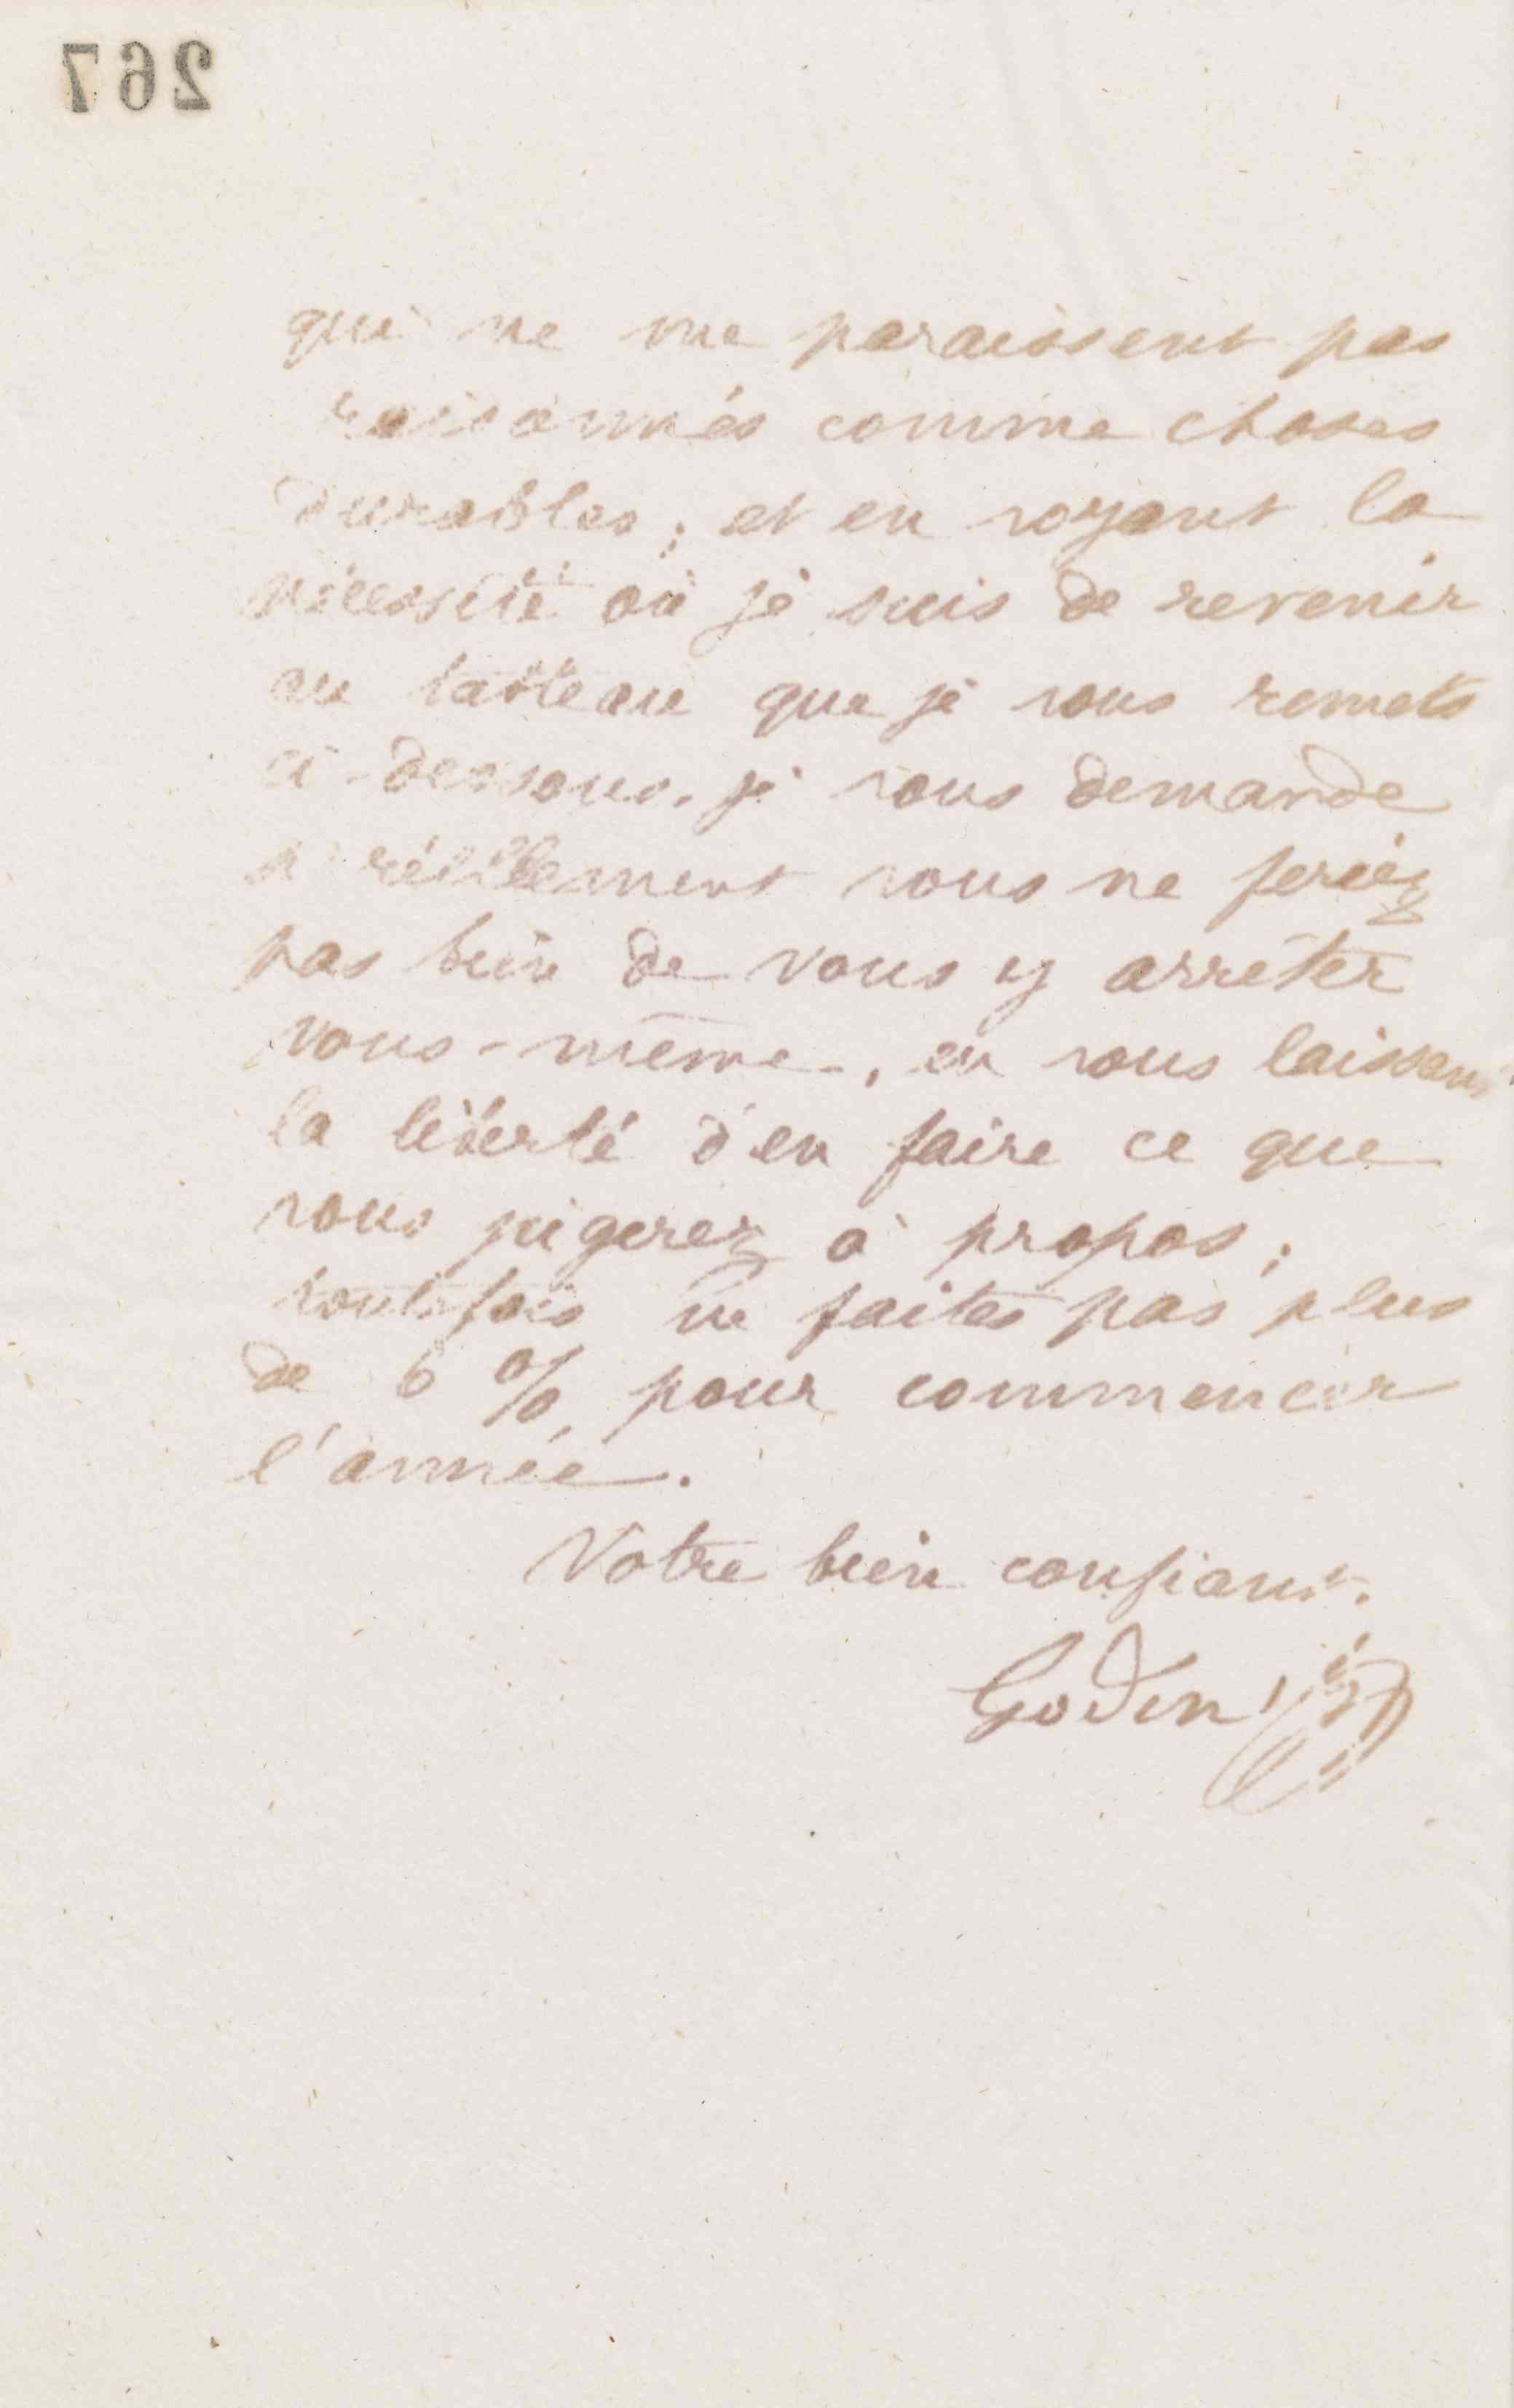 267
qui ne me paraissent pas
raisonnés comme choses
durables ; et en voyant la
nécessité où je suis de revenir
au tableau que je vous remets
ci-dessous, je vous demande
si réellement vous ne feriez
pas bien de vous y arrêter
vous-même, en vous laissant
la liberté d'en faire ce que
vous jugerez à propos ;
toutefois ne faites pas plus
de 6 % pour commencer
l'année.
Votre bien confiant.
Godin